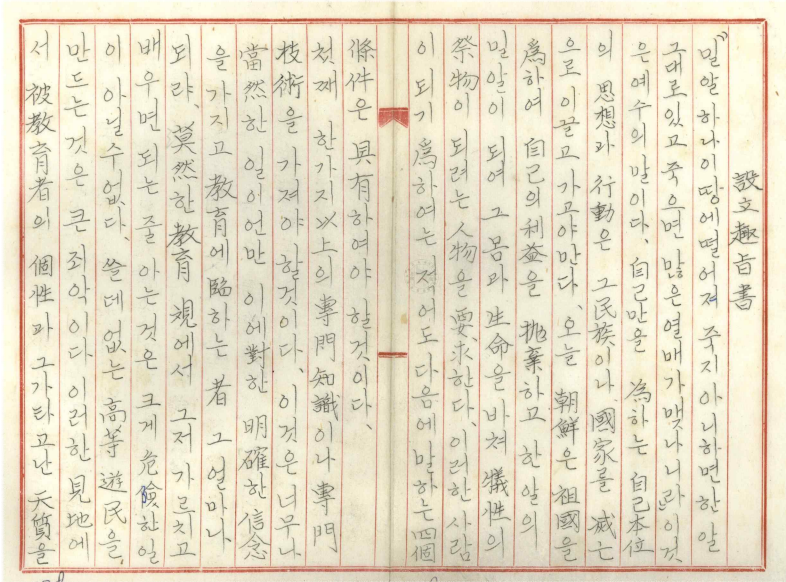 設立趣旨書
"밀알 하나이 땅에 떨어져 죽지 아니하면 한 알
그대로 있고 죽으면 많은 열매가 맺나니라" 이것
은 예수의 말이다、 自己만을 為하는 自己本位
의 思想과 行動은 그 民族이나 國家를 滅亡
으로 이끌고 가고야 만다. 오늘 朝鮮은 祖國을
爲하여 自己의 利益을 抛棄하고 한 알의
밀알이 되여 그 몸과 生命을 바쳐 犧牲의
祭物이 되려는 人物을 要求한다、이러한 사람
이 되기 爲하여는 적어도 다음에 말하는 四個
條件은 具有하여야 할 것이다、
첫째 한가지 以上의 專門知識이나 專門
技術을 가져야 할것이다、 이것은 너무나
當然한 일이언만 이에 對한 明確한 信念
을 가지고 敎育에 臨하는 者 그 얼마나
되랴、 莫然한 敎育 視에서 그저 가르치고
배우면 되는 줄 아는것은 크게 危險한 일
이 아닐수 없다、 쓸데없는 高等 遊民을
만드는 것은 큰 죄악이다 이러한 見地에
서 被敎育者의 個性과 그가 타고난 天質을